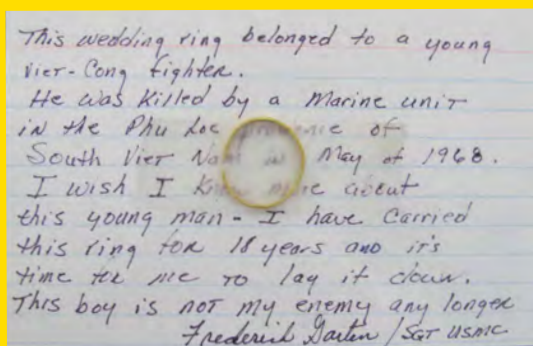 This wedding ring belonged to a young
Viet-Cong fighter.
He was killed by a Marine unit
in the Phu Loc province of
South Viet Nam in May of 1968.
I wish I knew more about
this young man - I have carried
this ring for 18 years and it's
time for me to lay it down.
This boy is not my enemy any longer
Frederick Garten / SGT USMC